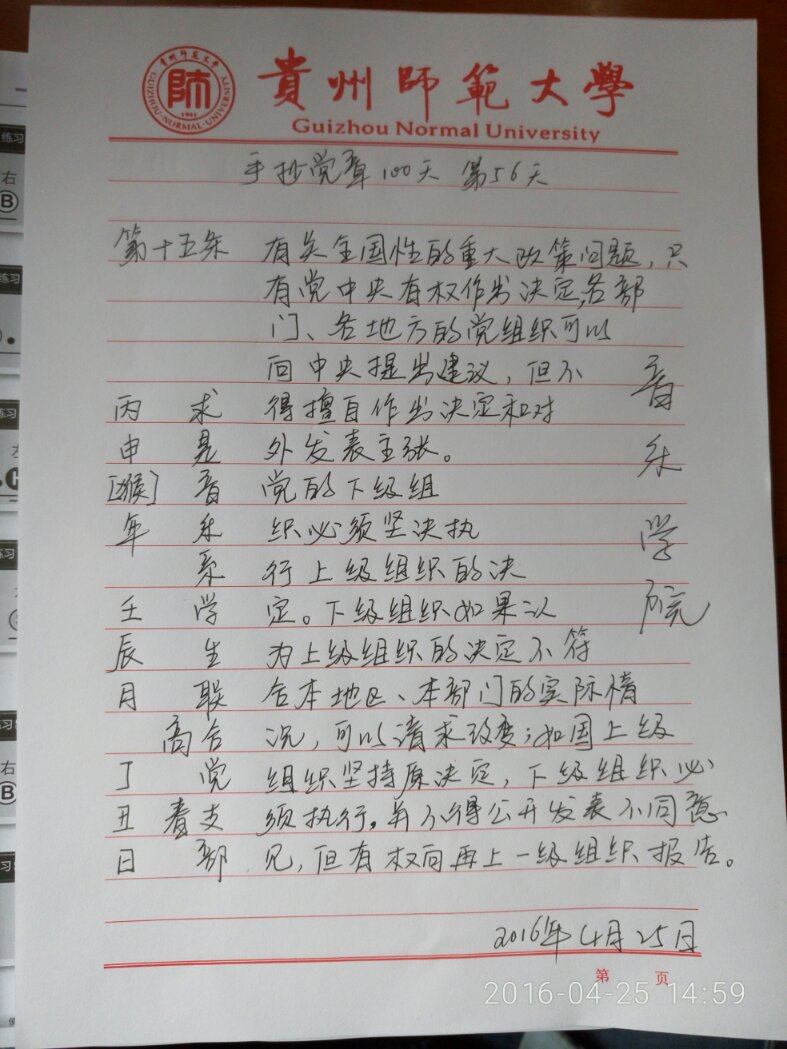 貴州師範大學
GUIZHOU·NORMAL·UNIVERSITY
1941
貴州師範大學
Guizhou Normal University
手抄党章100天 第56天
第十五条 有关全国性的重大政策问题，只
有党中央有权作出决定，各部
门、各地方的党组织可以
向中央提出建议，但不
得擅自作出决定和对
外发表主张。
党的下级组
织必须坚决执
行上级组织的决
定。下级组织如果认
为上级组织的决定不符
合本地区、本部门的实际情
况，可以请求改变；如国上级
组织坚持原决定，下级组织必
须执行，并不得公开发表不同意
见，但有权向再上一级组织报告。
丙申[猴]年 壬辰月 丁丑日
求是音乐系学生联合党支部
音乐学院
2016年4月25日
第 页
2016-04-25 14:59
练习
右
B
练习
练习
右
B